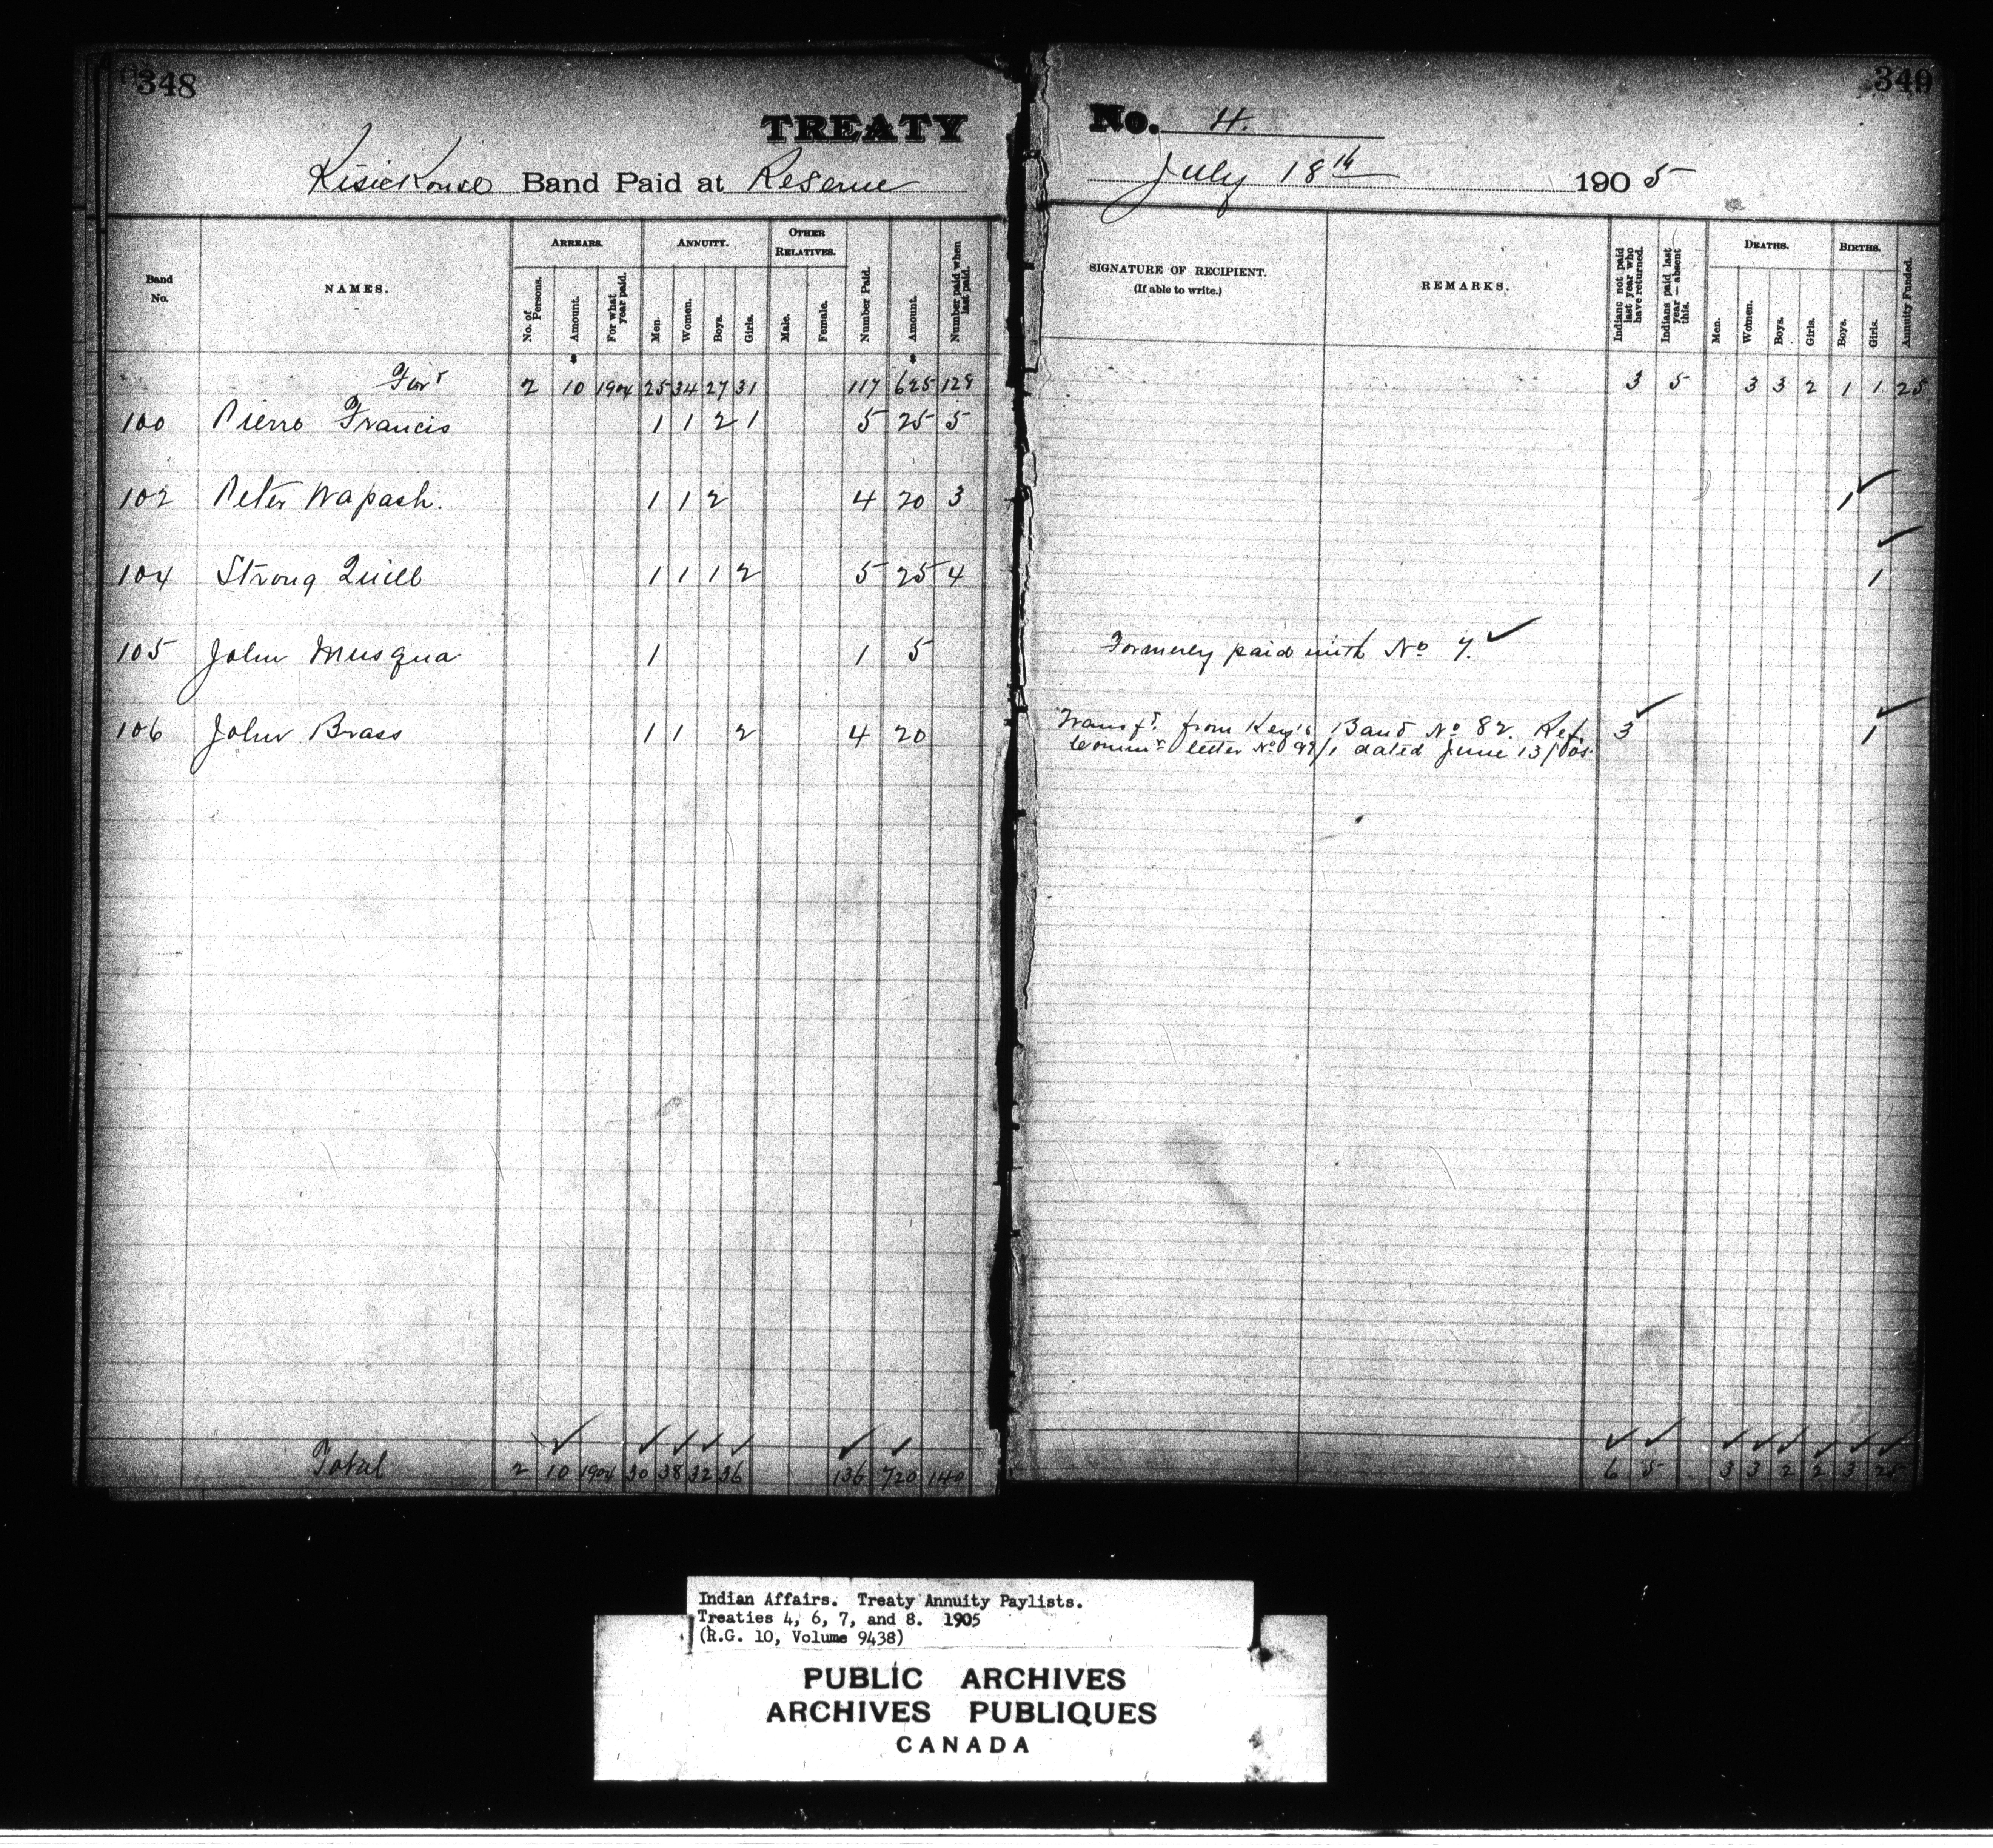 348
349
TREATY No. 4.
Kisickouse Band Paid at Reserve July 18th 1905
Band No.
NAMES.
ARREARS.
No. of Persons.
Amount.
For what year paid.
ANNUITY.
Men.
Women.
Boys.
Girls.
OTHER RELATIVES.
Male.
Female.
Number Paid.
Amount.
Number paid when last paid.
SIGNATURE OF RECIPIENT.
(If able to write.)
REMARKS.
Indians not paid last year who have returned.
Indians paid last year — absent this.
DEATHS.
Men.
Women.
Boys.
Girls.
BIRTHS.
Boys.
Girls.
Annuity Funded.
Ford 2 10 1904 25 34 27 31 117 625 128 3 5 3 3 2 1 1 25
100 Pierre Francis 1 1 2 1 5 25 5
102 Peter Wapash. 1 1 2 4 20 3 1
104 Strong Quill 1 1 1 2 5 25 4 1
105 John Musqua 1 1 5 Formerly paid with No 7.
106 John Brass 1 1 2 4 20 Transfd. from Key's Band No 82. Ref. 3 1
Commrs letter No 99/1 dated June 13/05.
Total 2 10 1904 30 38 32 36 136 720 140 6 5 3 3 2 2 3 25
Indian Affairs. Treaty Annuity Paylists.
Treaties 4, 6, 7, and 8. 1905
(R.G. 10, Volume 9438)
PUBLIC ARCHIVES
ARCHIVES PUBLIQUES
CANADA